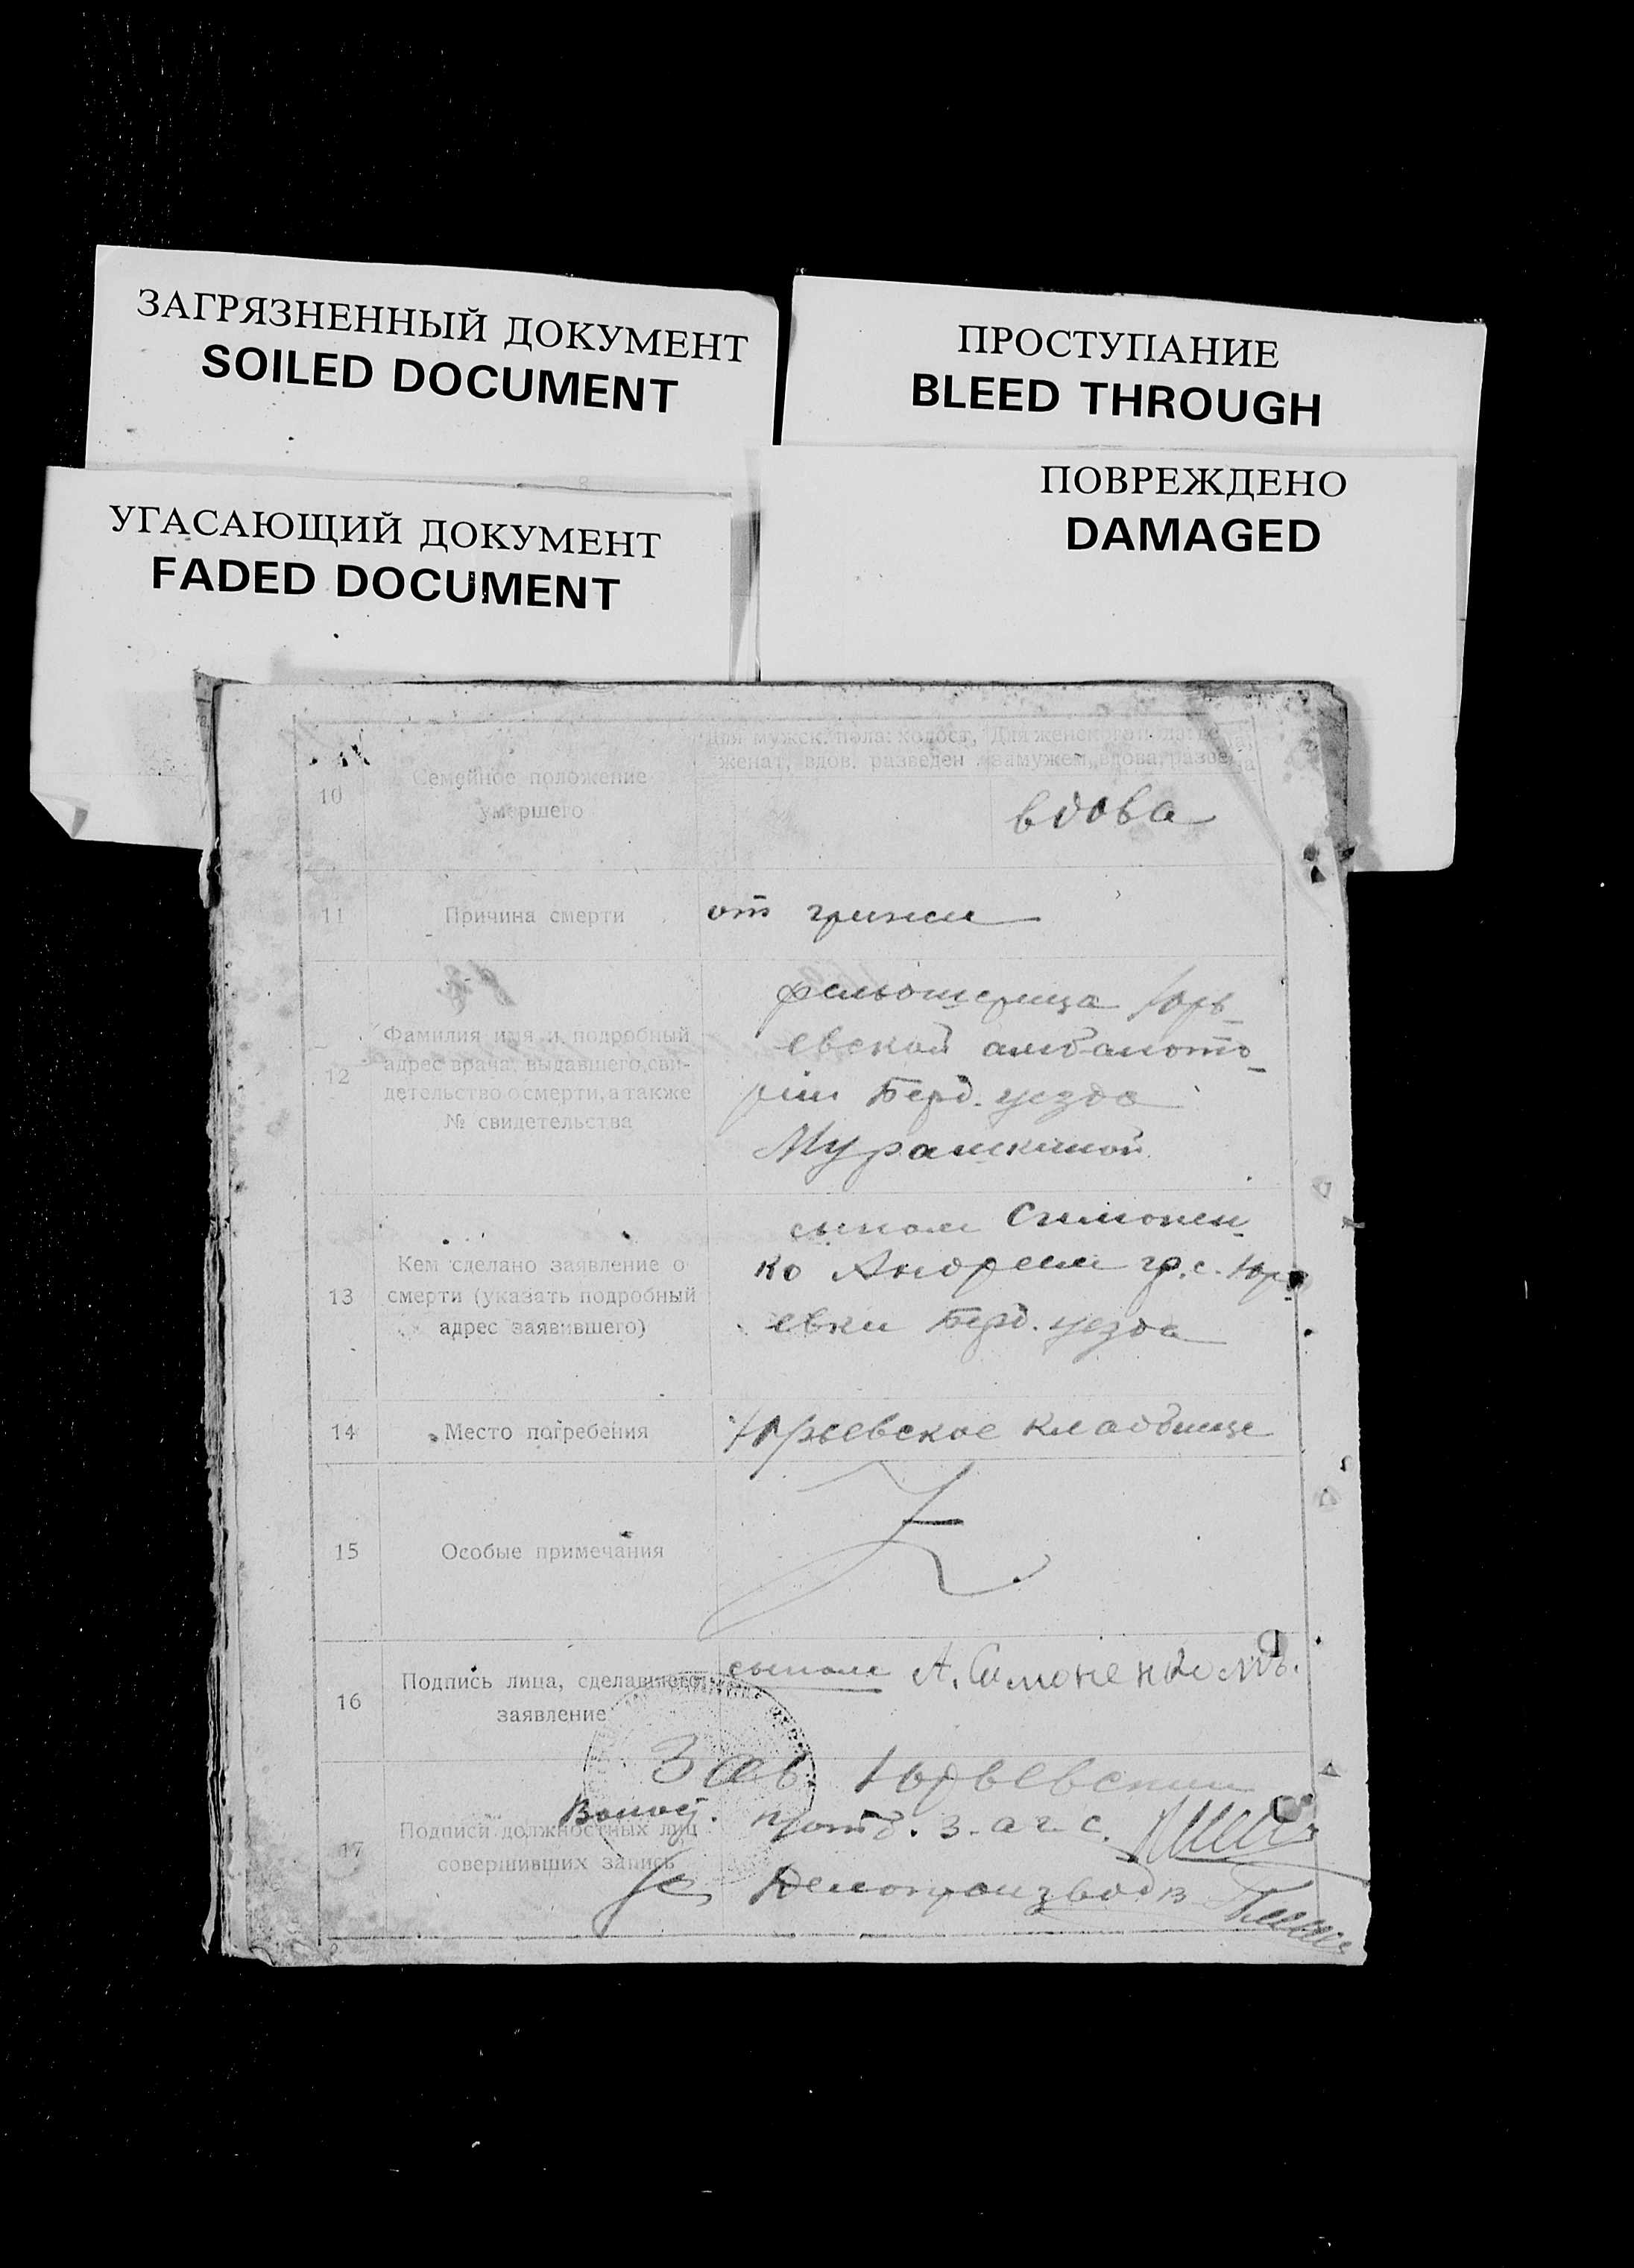 ЗАГРЯЗНЕННЫЙ ДОКУМЕНТ
SOILED DOCUMENT
ПРОСТУПАНИЕ
BLEED THROUGH
УГАСАЮЩИЙ ДОКУМЕНТ
FADED DOCUMENT
ПОВРЕЖДЕНО
DAMAGED
10
Семейное положение
умершего
Для мужск. пола: холост,
женат, вдов, разведен
Для женского пола:
замужем, вдова,
вдова
11
Причина смерти
от грижи
12
Фамилия имя и подробный
адрес врача, выдавшего сви-
детельство о смерти, а также
№ свидетельства
фельдшерица Юрь-
евской амбулато-
рии Берд. уезда
Мурашкиной
13
Кем сделано заявление о
смерти (указать подробный
адрес заявившего)
сыном Симонен-
ко Андреем гр. с. Юрь-
евки Берд. уезда
14
Место погребения
Юрьевское кладбище
15
Особые примечания
16
Подпись лица, сделавшего
заявление
сыном А. Симоненкомъ.
17
Подписи должностных лиц
совершивших запись
Зав. Юрьевским
Волос. п/отд. з.а.г.с.
Делопроизвод